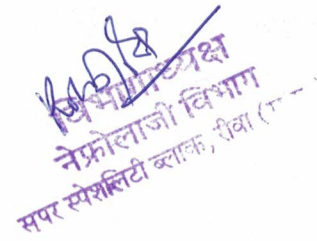 विभागाध्यक्ष
नेफ्रोलाजी विभाग
सुपर स्पेशलिटी ब्लाक, रीवा (